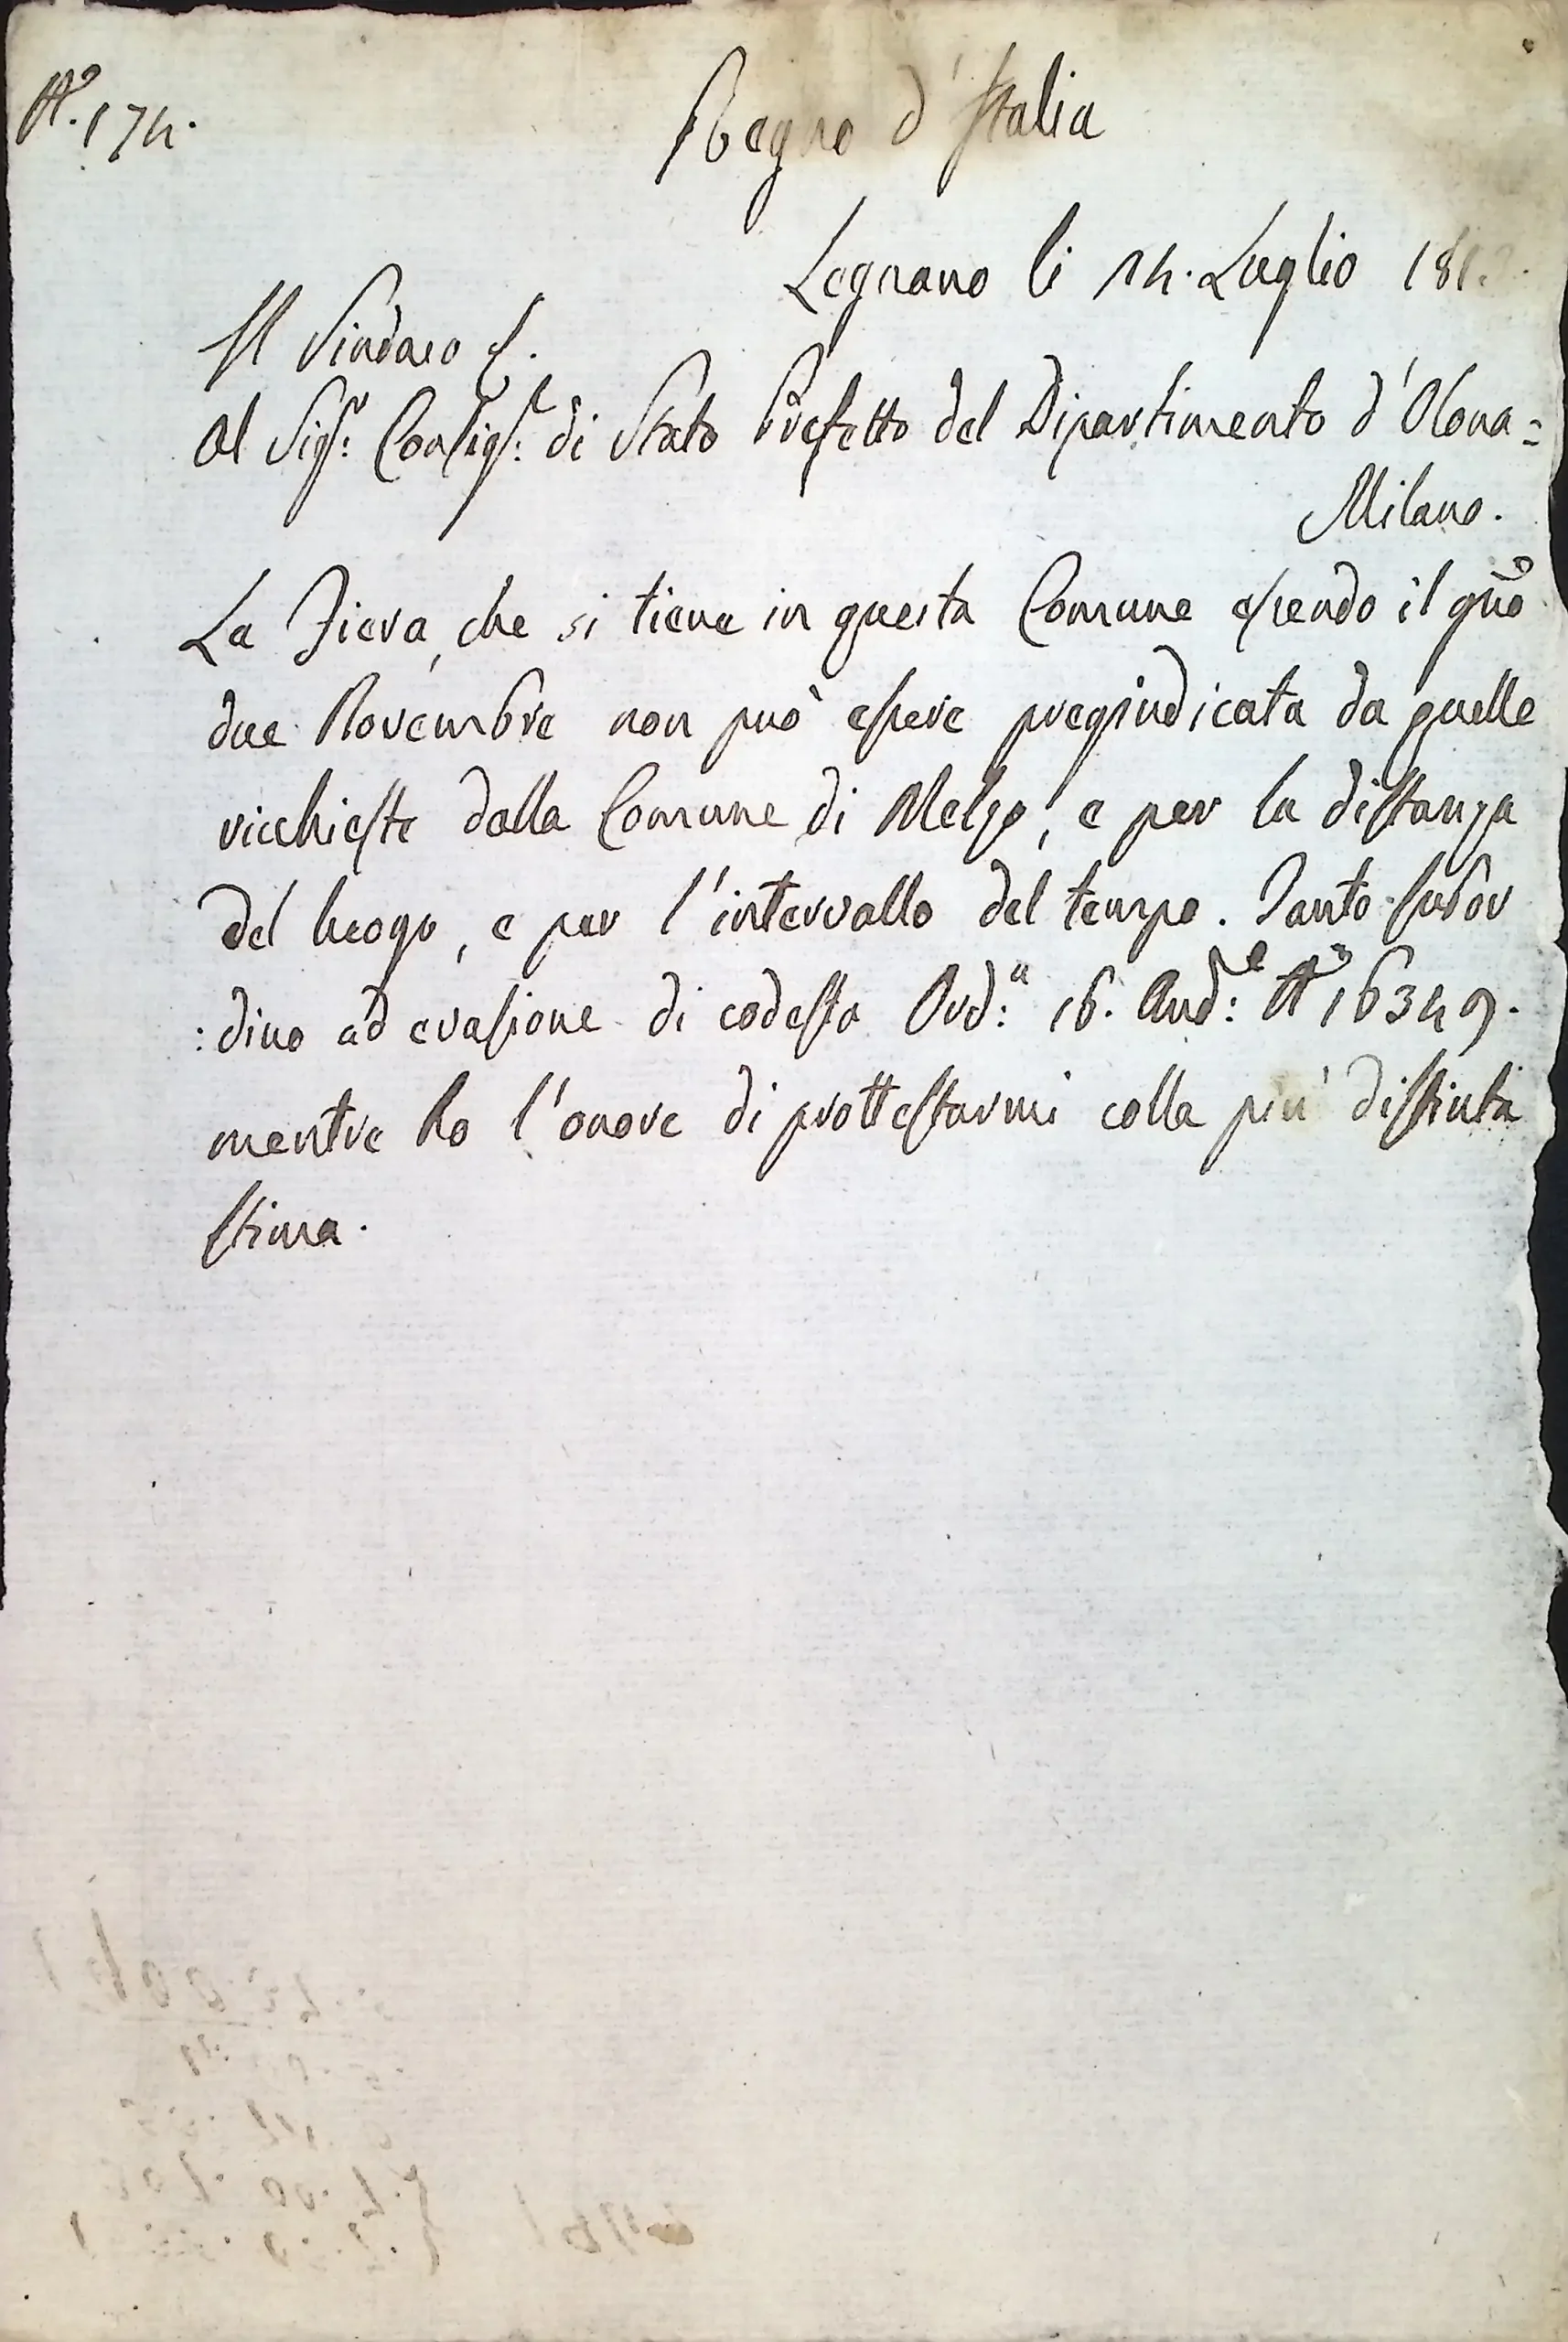 N.° 174.
Regno d'Italia
Legnano li 14. Luglio 181
Il Sindaco f.
Al Sig.r Consig.r di Stato Prefetto del Dipartimento d'Olona=
Milano.
La Fiera, che si tiene in questa Comune essendo il gno
due Novembre non può essere pregiudicata da quelle
ricchieste dalla Comune di Melzo, e per la distanza
del luogo, e per l'intervallo del tempo. Tanto subor
:dino ad evasione di codesta Ord.a 16. And.e N° 16349.
mentre ho l'onore di prottestarmi colla più distinta
stima.